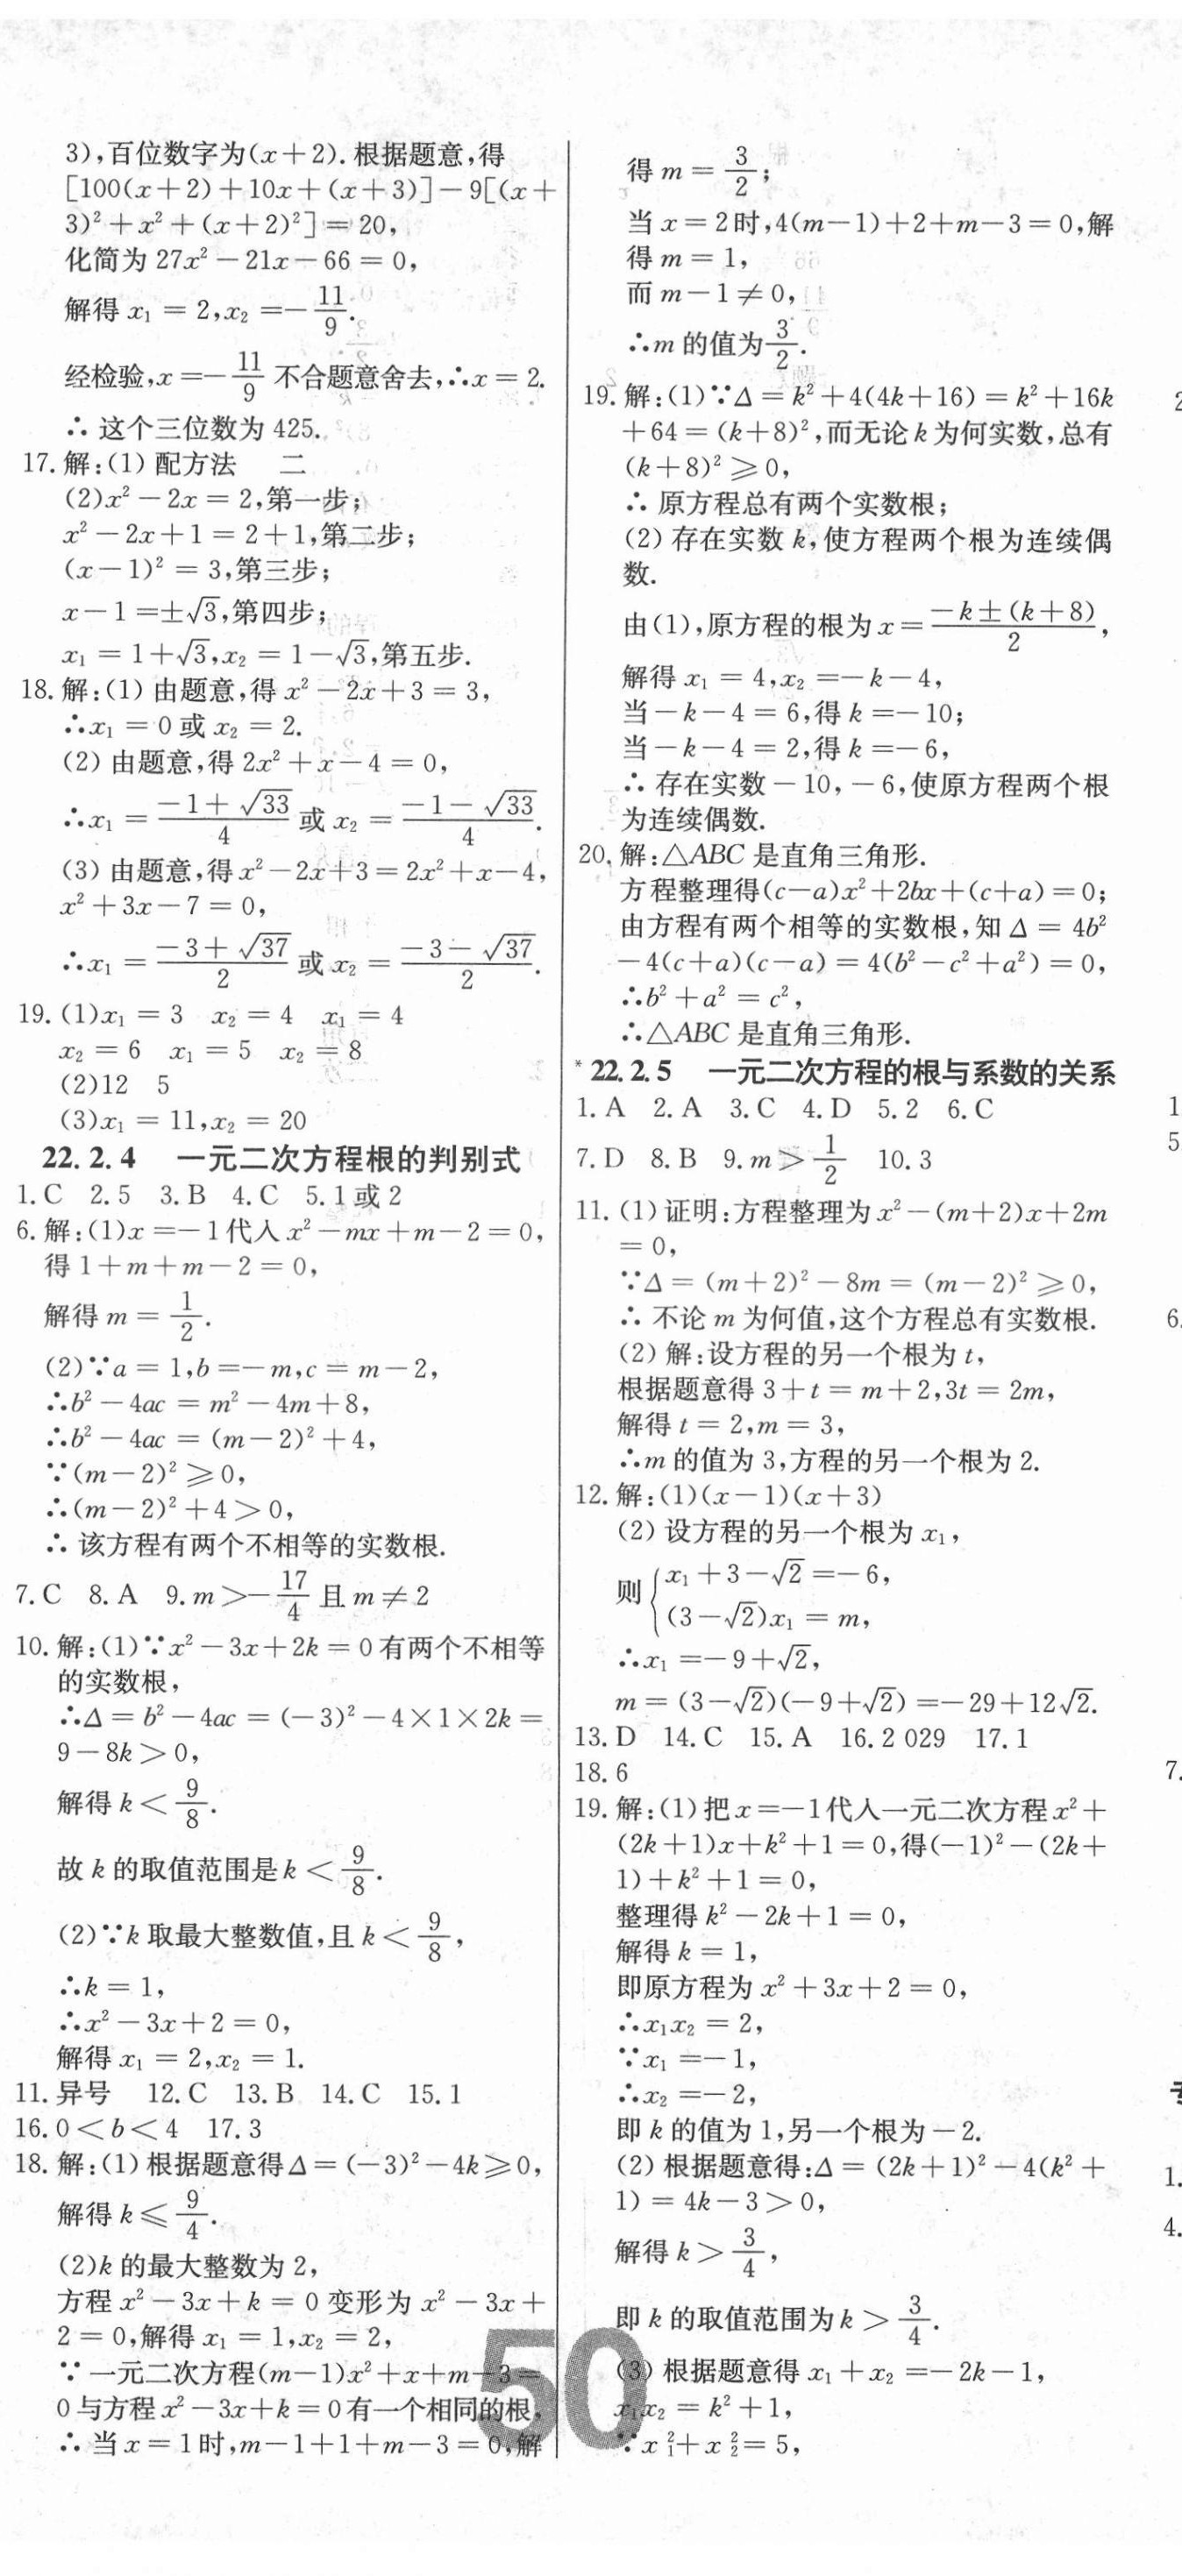 3),百位数字为(x+2).根据题意,得
[100(x+2)+10x+(x+3)]-9[(x+
3)²+x²+(x+2)²]=20,
化简为 27x²-21x-66=0,
解得 x₁=2,x₂=-11/9.
经检验,x=-11/9 不合题意舍去,∴x=2.
∴ 这个三位数为 425.
17.解:(1) 配方法 二
(2)x²-2x=2,第一步;
x²-2x+1=2+1,第二步;
(x-1)²=3,第三步;
x-1=±√3,第四步;
x₁=1+√3,x₂=1-√3,第五步.
18.解:(1) 由题意,得 x²-2x+3=3,
∴x₁=0 或 x₂=2.
(2) 由题意,得 2x²+x-4=0,
∴x₁=(-1+√33)/4 或 x₂=(-1-√33)/4.
(3) 由题意,得 x²-2x+3=2x²+x-4,
x²+3x-7=0,
∴x₁=(-3+√37)/2 或 x₂=(-3-√37)/2.
19.(1)x₁=3 x₂=4 x₁=4
x₂=6 x₁=5 x₂=8
(2)12 5
(3)x₁=11,x₂=20
22.2.4 一元二次方程根的判别式
1.C 2.5 3.B 4.C 5.1 或 2
6.解:(1)x=-1代入 x²-mx+m-2=0,
得 1+m+m-2=0,
解得 m=1/2.
(2)∵a=1,b=-m,c=m-2,
∴b²-4ac=m²-4m+8,
∴b²-4ac=(m-2)²+4,
∵(m-2)²≥0,
∴(m-2)²+4>0,
∴ 该方程有两个不相等的实数根.
7.C 8.A 9.m>-17/4 且 m≠2
10.解:(1)∵x²-3x+2k=0有两个不相等
的实数根,
∴Δ=b²-4ac=(-3)²-4×1×2k=
9-8k>0,
解得 k<9/8.
故 k 的取值范围是 k<9/8.
(2)∵k 取最大整数值,且 k<9/8,
∴k=1,
∴x²-3x+2=0,
解得 x₁=2,x₂=1.
11.异号 12.C 13.B 14.C 15.1
16.0<b<4 17.3
18.解:(1) 根据题意得Δ=(-3)²-4k≥0,
解得 k≤9/4.
(2)k 的最大整数为 2,
方程 x²-3x+k=0 变形为 x²-3x+
2=0,解得 x₁=1,x₂=2,
∵ 一元二次方程(m-1)x²+x+m-3=
0与方程 x²-3x+k=0有一个相同的根,
∴ 当 x=1时,m-1+1+m-3=0,解
得 m=3/2;
当 x=2时,4(m-1)+2+m-3=0,解
得 m=1,
而 m-1≠0,
∴m 的值为3/2.
19.解:(1)∵Δ=k²+4(4k+16)=k²+16k
+64=(k+8)²,而无论 k 为何实数,总有
(k+8)²≥0,
∴ 原方程总有两个实数根;
(2) 存在实数 k,使方程两个根为连续偶
数.
由(1),原方程的根为 x=(-k±(k+8))/2,
解得 x₁=4,x₂=-k-4,
当-k-4=6,得 k=-10;
当-k-4=2,得 k=-6,
∴ 存在实数-10,-6,使原方程两个根
为连续偶数.
20.解:△ABC 是直角三角形.
方程整理得(c-a)x²+2bx+(c+a)=0;
由方程有两个相等的实数根,知 Δ=4b²
-4(c+a)(c-a)=4(b²-c²+a²)=0,
∴b²+a²=c²,
∴△ABC 是直角三角形.
*22.2.5 一元二次方程的根与系数的关系
1.A 2.A 3.C 4.D 5.2 6.C
7.D 8.B 9.m>1/2 10.3
11.(1) 证明:方程整理为 x²-(m+2)x+2m
=0,
∵Δ=(m+2)²-8m=(m-2)²≥0,
∴ 不论 m 为何值,这个方程总有实数根.
(2) 解:设方程的另一个根为 t,
根据题意得 3+t=m+2,3t=2m,
解得 t=2,m=3,
∴m 的值为 3,方程的另一个根为 2.
12.解:(1)(x-1)(x+3)
(2) 设方程的另一个根为 x₁,
则{x₁+3-√2=-6,
(3-√2)x₁=m,
∴x₁=-9+√2,
m=(3-√2)(-9+√2)=-29+12√2.
13.D 14.C 15.A 16.2 029 17.1
18.6
19.解:(1)把 x=-1代入一元二次方程 x²+
(2k+1)x+k²+1=0,得(-1)²-(2k+
1)+k²+1=0,
整理得 k²-2k+1=0,
解得 k=1,
即原方程为 x²+3x+2=0,
∴x₁x₂=2,
∵x₁=-1,
∴x₂=-2,
即 k 的值为 1,另一个根为-2.
(2) 根据题意得:Δ=(2k+1)²-4(k²+
1)=4k-3>0,
解得 k>3/4,
即 k 的取值范围为 k>3/4.
(3) 根据题意得 x₁+x₂=-2k-1,
x₁x₂=k²+1,
∵x₁²+x₂²=5,
50
1
5
6.
7.
1.
4.